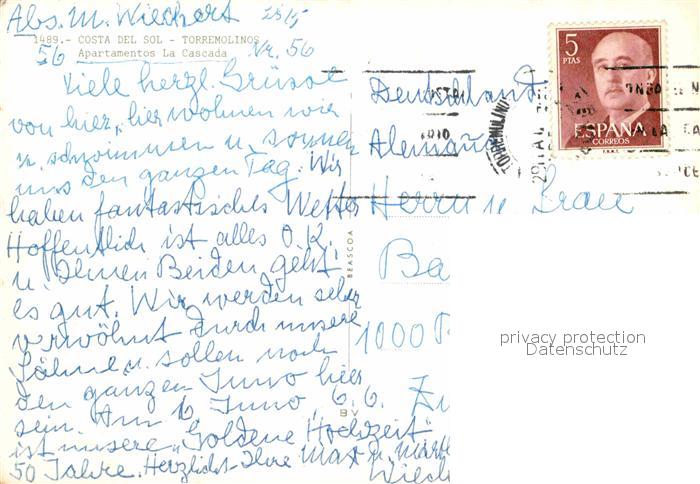 Abs. M. Wiechert 25/5
1489.- COSTA DEL SOL - TORREMOLINOS
56 Apartamentos La Cascada Nr. 56
Viele herzl. Grüsse
von hier, hier wohnen wir
u. schwimmen u. sonnen
uns den ganzen Tag. Wir
haben fantastisches Wetter
Hoffentlich ist alles O.K.
u. Ihnen Beiden geht
es gut. Wir werden sehr
verwöhnt durch unsere
Söhne u. sollen noch
den ganzen Juno hier
sein. Am 6 Juno, 6.6.
ist unsere "Goldene Hochzeit"
50 Jahre. Herzlichst Ihre Max u. Martha
Wiech
BEASCOA
BV
5
PTAS
ESPAÑA
CORREOS
F.N.M.T.
TORREMOLINOS
Deutschland
Alemaña
Herrn u Frau
Ba
1000
privacy protection
Datenschutz